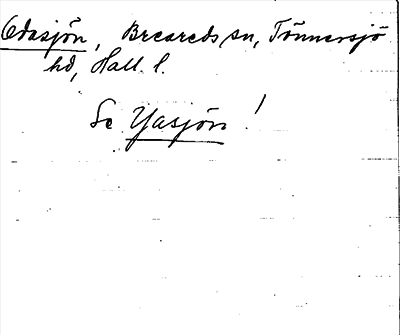 Odasjön, Breareds sn, Tönnersjö
hd, Hall. l.
Se Yasjön!